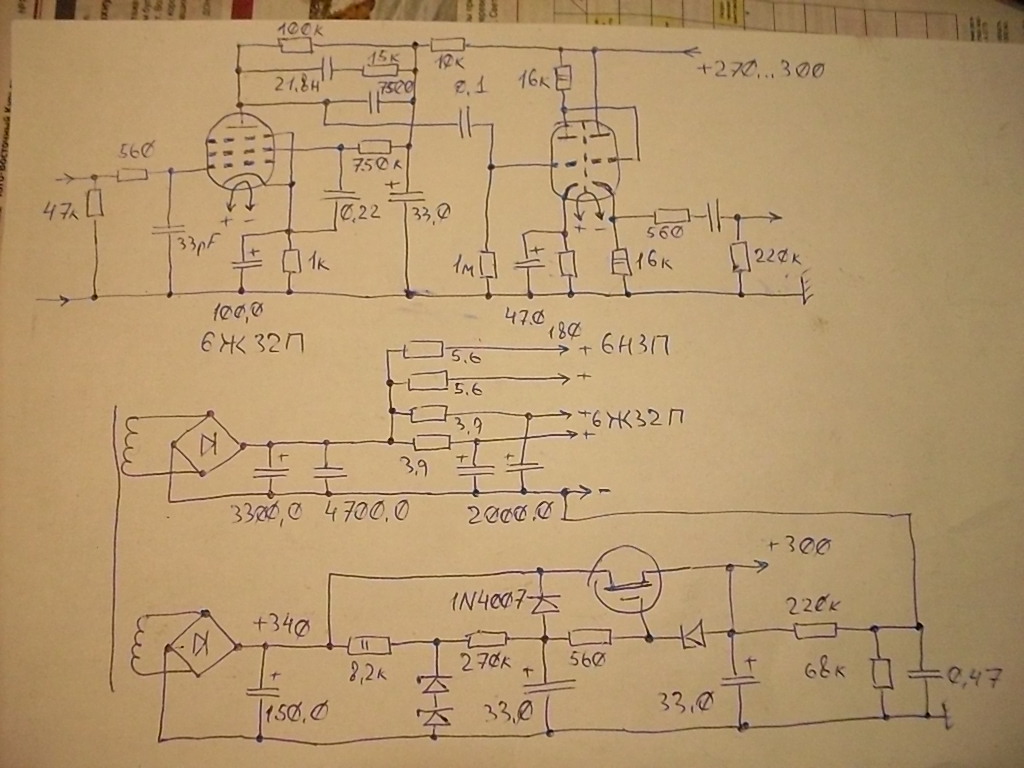 100к
15к
10к
21,8н
7500
0,1
16к
+270...300
560
47к
750к
33pF
+ -
0,22
+
33,0
+
1к
1м
+
+ -
560
16к
220к
100,0
47.0
180
6Ж32П
5,6
+ 6Н3П
5,6
+
3,9
+6Ж32П
3,9
+
+
+
+
-
3300,0
4700,0
2000,0
+300
1N4007
220к
+340
8,2к
270к
560
68к
0,47
+
150,0
+
33,0
+
33,0